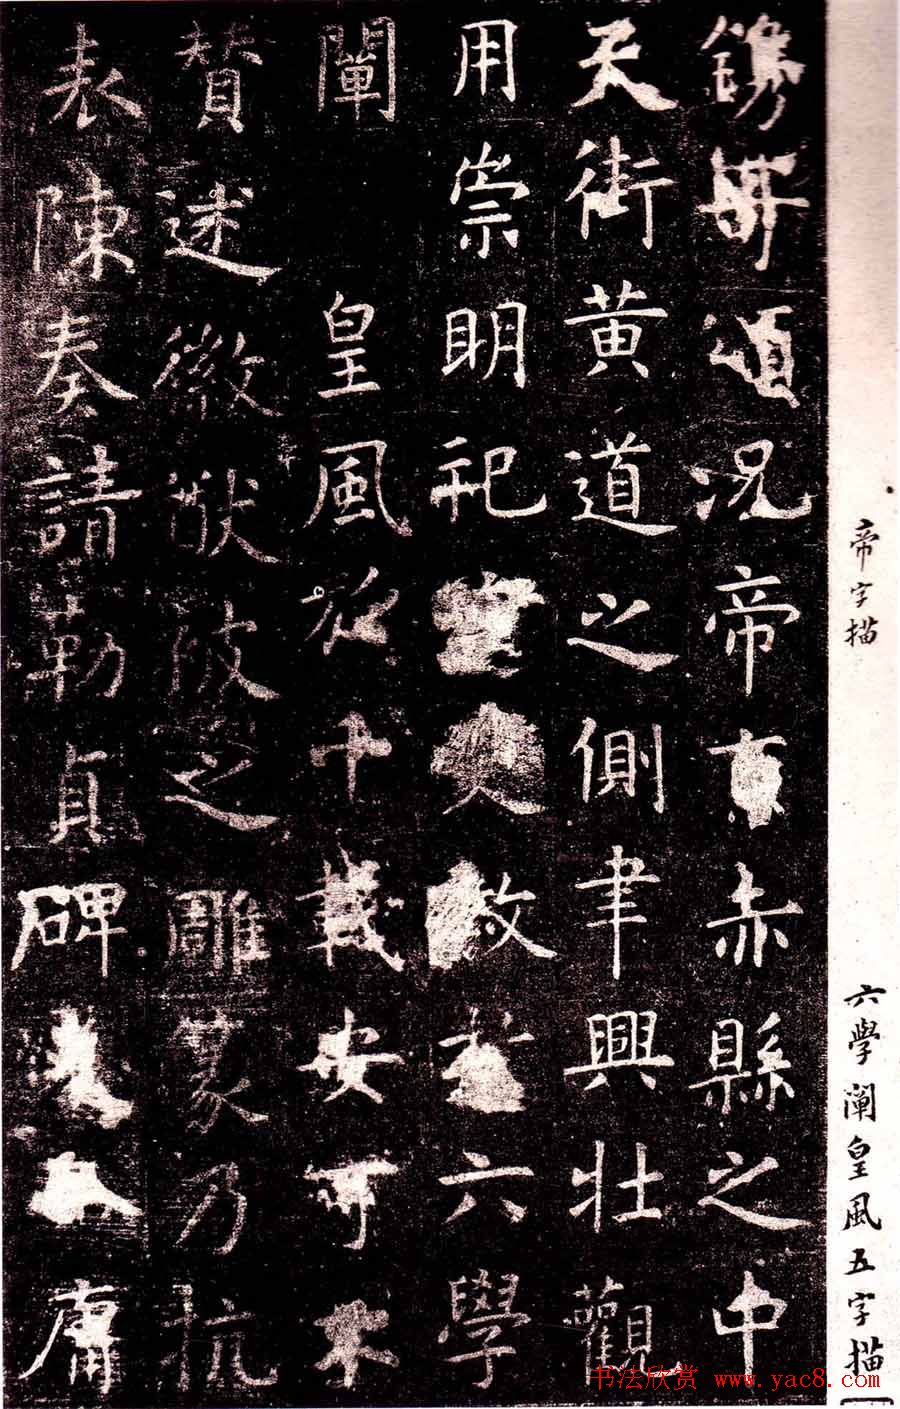 帝字描
六學闡皇風五字描
鐫頌況帝京赤縣之中
天街黃道之側聿興壯觀
用崇明祀宣文教於六學
闡 皇風於千載安可不
贊述徽猷被之雕篆乃抗
表陳奏請勒貞碑爰命庸
书法欣赏 www.yac8.com